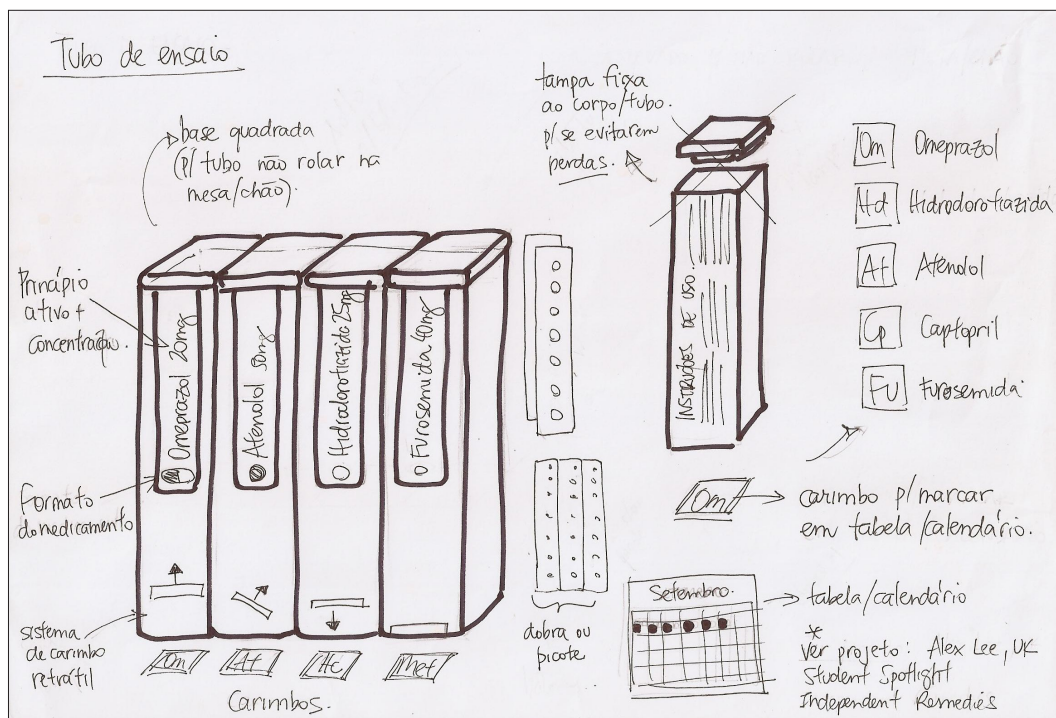 Tubo de ensaio
base quadrada
(p/ tubo não rolar na
mesa/chão).
Princípio
ativo +
concentração.
Formato
do medicamento
sistema
de carimbo
retrátil
Omeprazol 20mg
Atenolol 50mg
Hidrodorotiazida 25mg
Furosemida 40mg
Om
At
Hc
Met
Carimbos.
dobra ou
picote
tampa fixa
ao corpo/tubo.
p/ se evitarem
perdas.
INSTRUÇÕES DE USO.
Om Omeprazol
Hd Hidrodorotiazida
At Atenolol
Cp Captopril
Fu Furosemida
Om
carimbo p/ marcar
em tabela/calendário.
Setembro.
tabela/calendário
*
Ver projeto: Alex Lee, UK
Student Spotlight
Independent Remedies